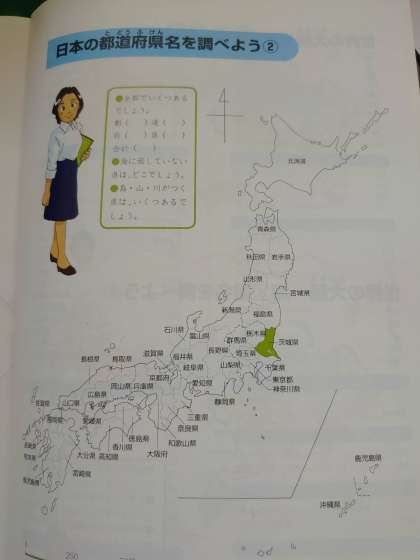 と どう ふ けん
日本の都道府県名を調べよう②
●全部でいくつある
でしょう。
都( )道( )
府( )県( )
合計( )
●海に面していない
県は、どこでしょう。
●島・山・川がつく
県は、いくつあるで
しょう。
北海道
青森県
秋田県
岩手県
山形県
宮城県
新潟県
福島県
石川県
富山県
群馬県
栃木県
茨城県
島根県
鳥取県
滋賀県
福井県
長野県
埼玉県
岐阜県
山梨県
千葉県
京都府
東京都
岡山県
兵庫県
愛知県
神奈川県
広島県
静岡県
山口県
三重県
愛媛県
奈良県
徳島県
和歌山県
香川県
大分県
高知県
大阪府
宮崎県
鹿児島県
沖縄県
250